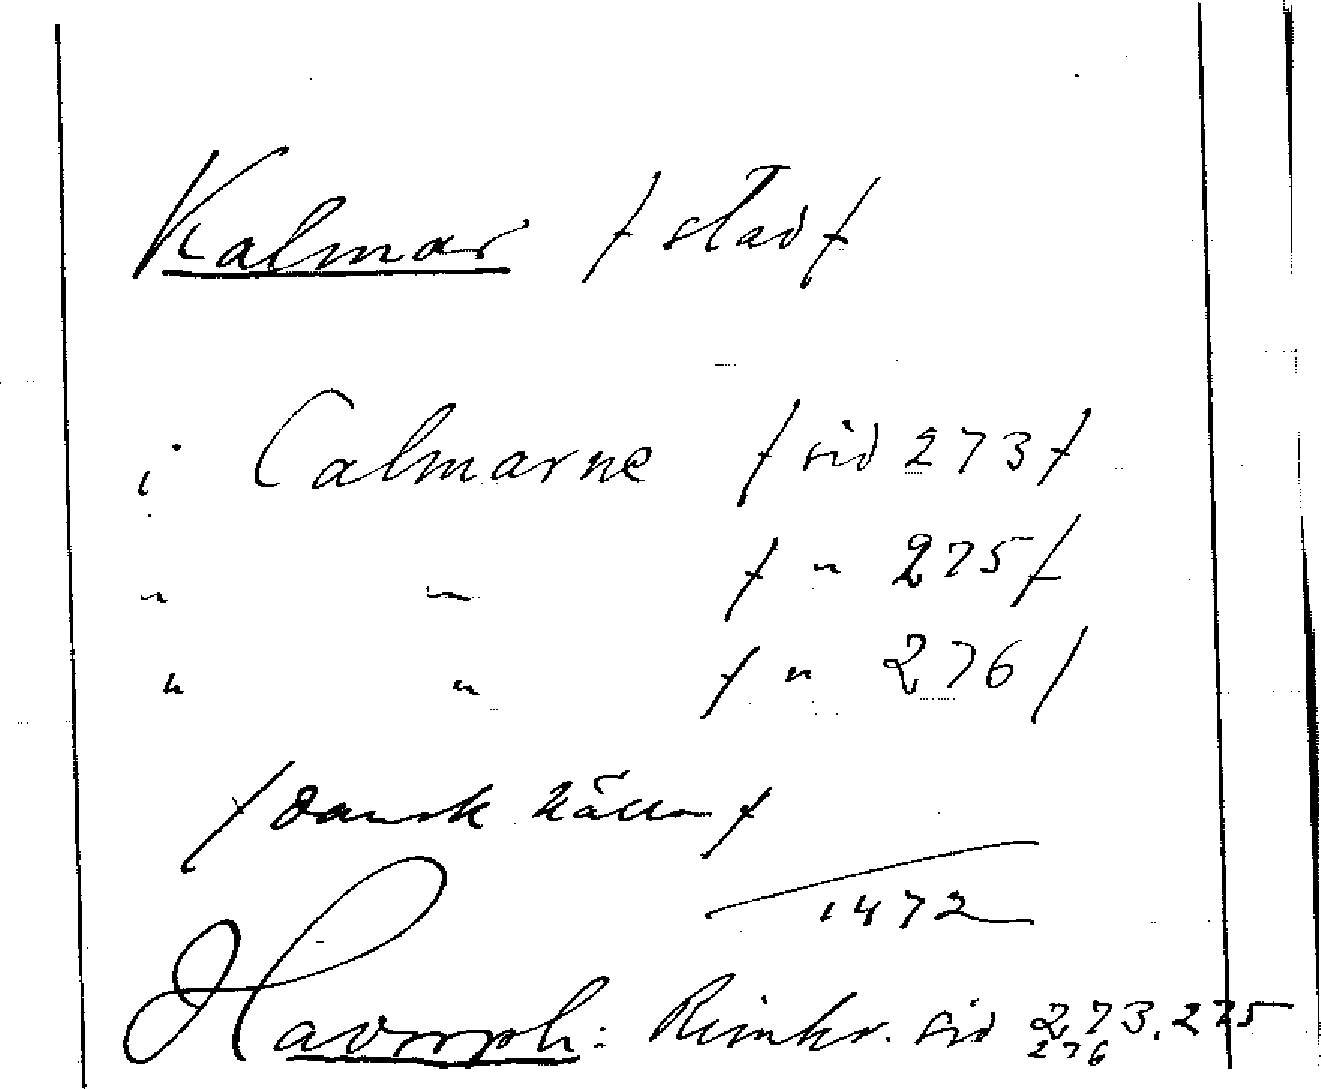 Kalmar / stad /
i Calmarne / sid 273 /
" " / " 275 /
" " / " 276 /
/ dansk källa /
1472
Havorph: Rimkr. sid 273. 275
276